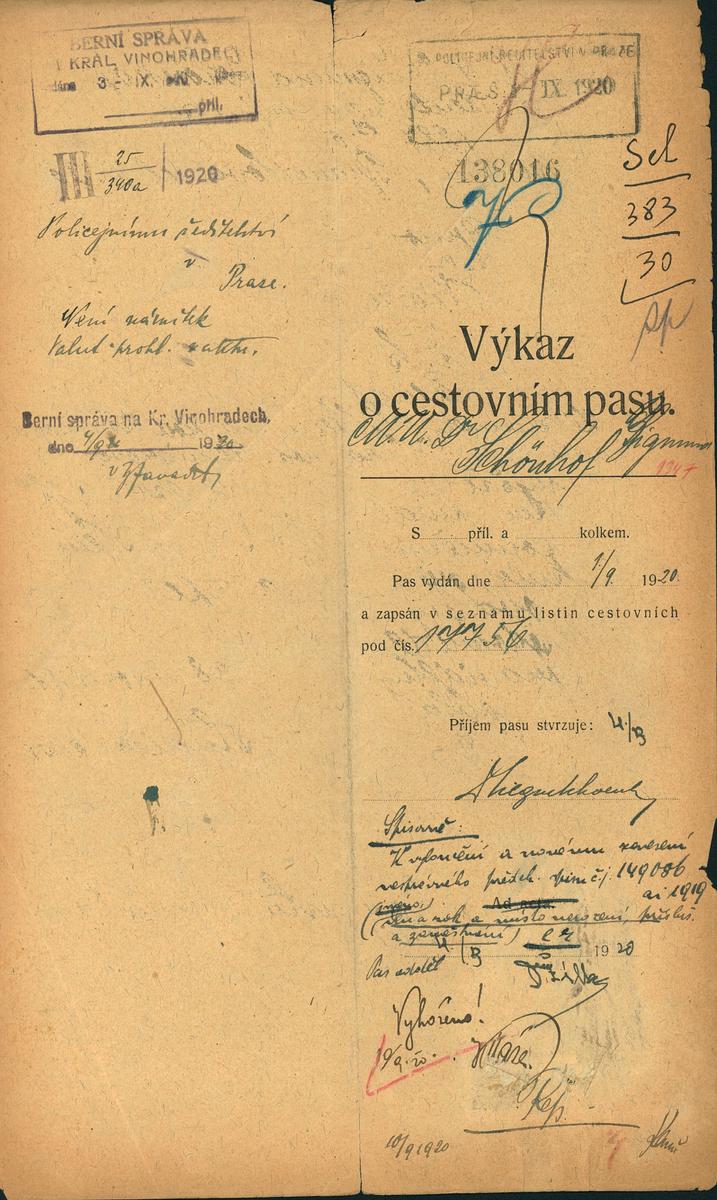 BERNÍ SPRÁVA
KRÁL. VINOHRADECH
dne 3 - IX.
příl.
III 25/340a 1920
Policejnímu ředitelství
v
Praze.
Není námitek
Berní správa na Kr. Vinohradech,
dne 4/9 1920
POLICEJNÍ ŘEDITELSTVÍ V PRAZE
IX. 1920
138016
Sch
383
30
Výkaz
o cestovním pasu.
M.U. Dr
Schönhof Sigmund
1247
S příl. a kolkem.
Pas vydán dne 1/9 1920
a zapsán v seznamu listin cestovních
pod čís. 17756
Příjem pasu stvrzuje: 4/9
Spisovně:
K vyloučení a novému zavedení
nesprávného předch. spisu čj. 149086
ai 1919
(jméno,
Ad acta.
den a rok a místo narození, přísluš.
a zaměstnání)
4/9 1920
Pas odděl
Vyhověno!
19/9.20.
10/9 1920